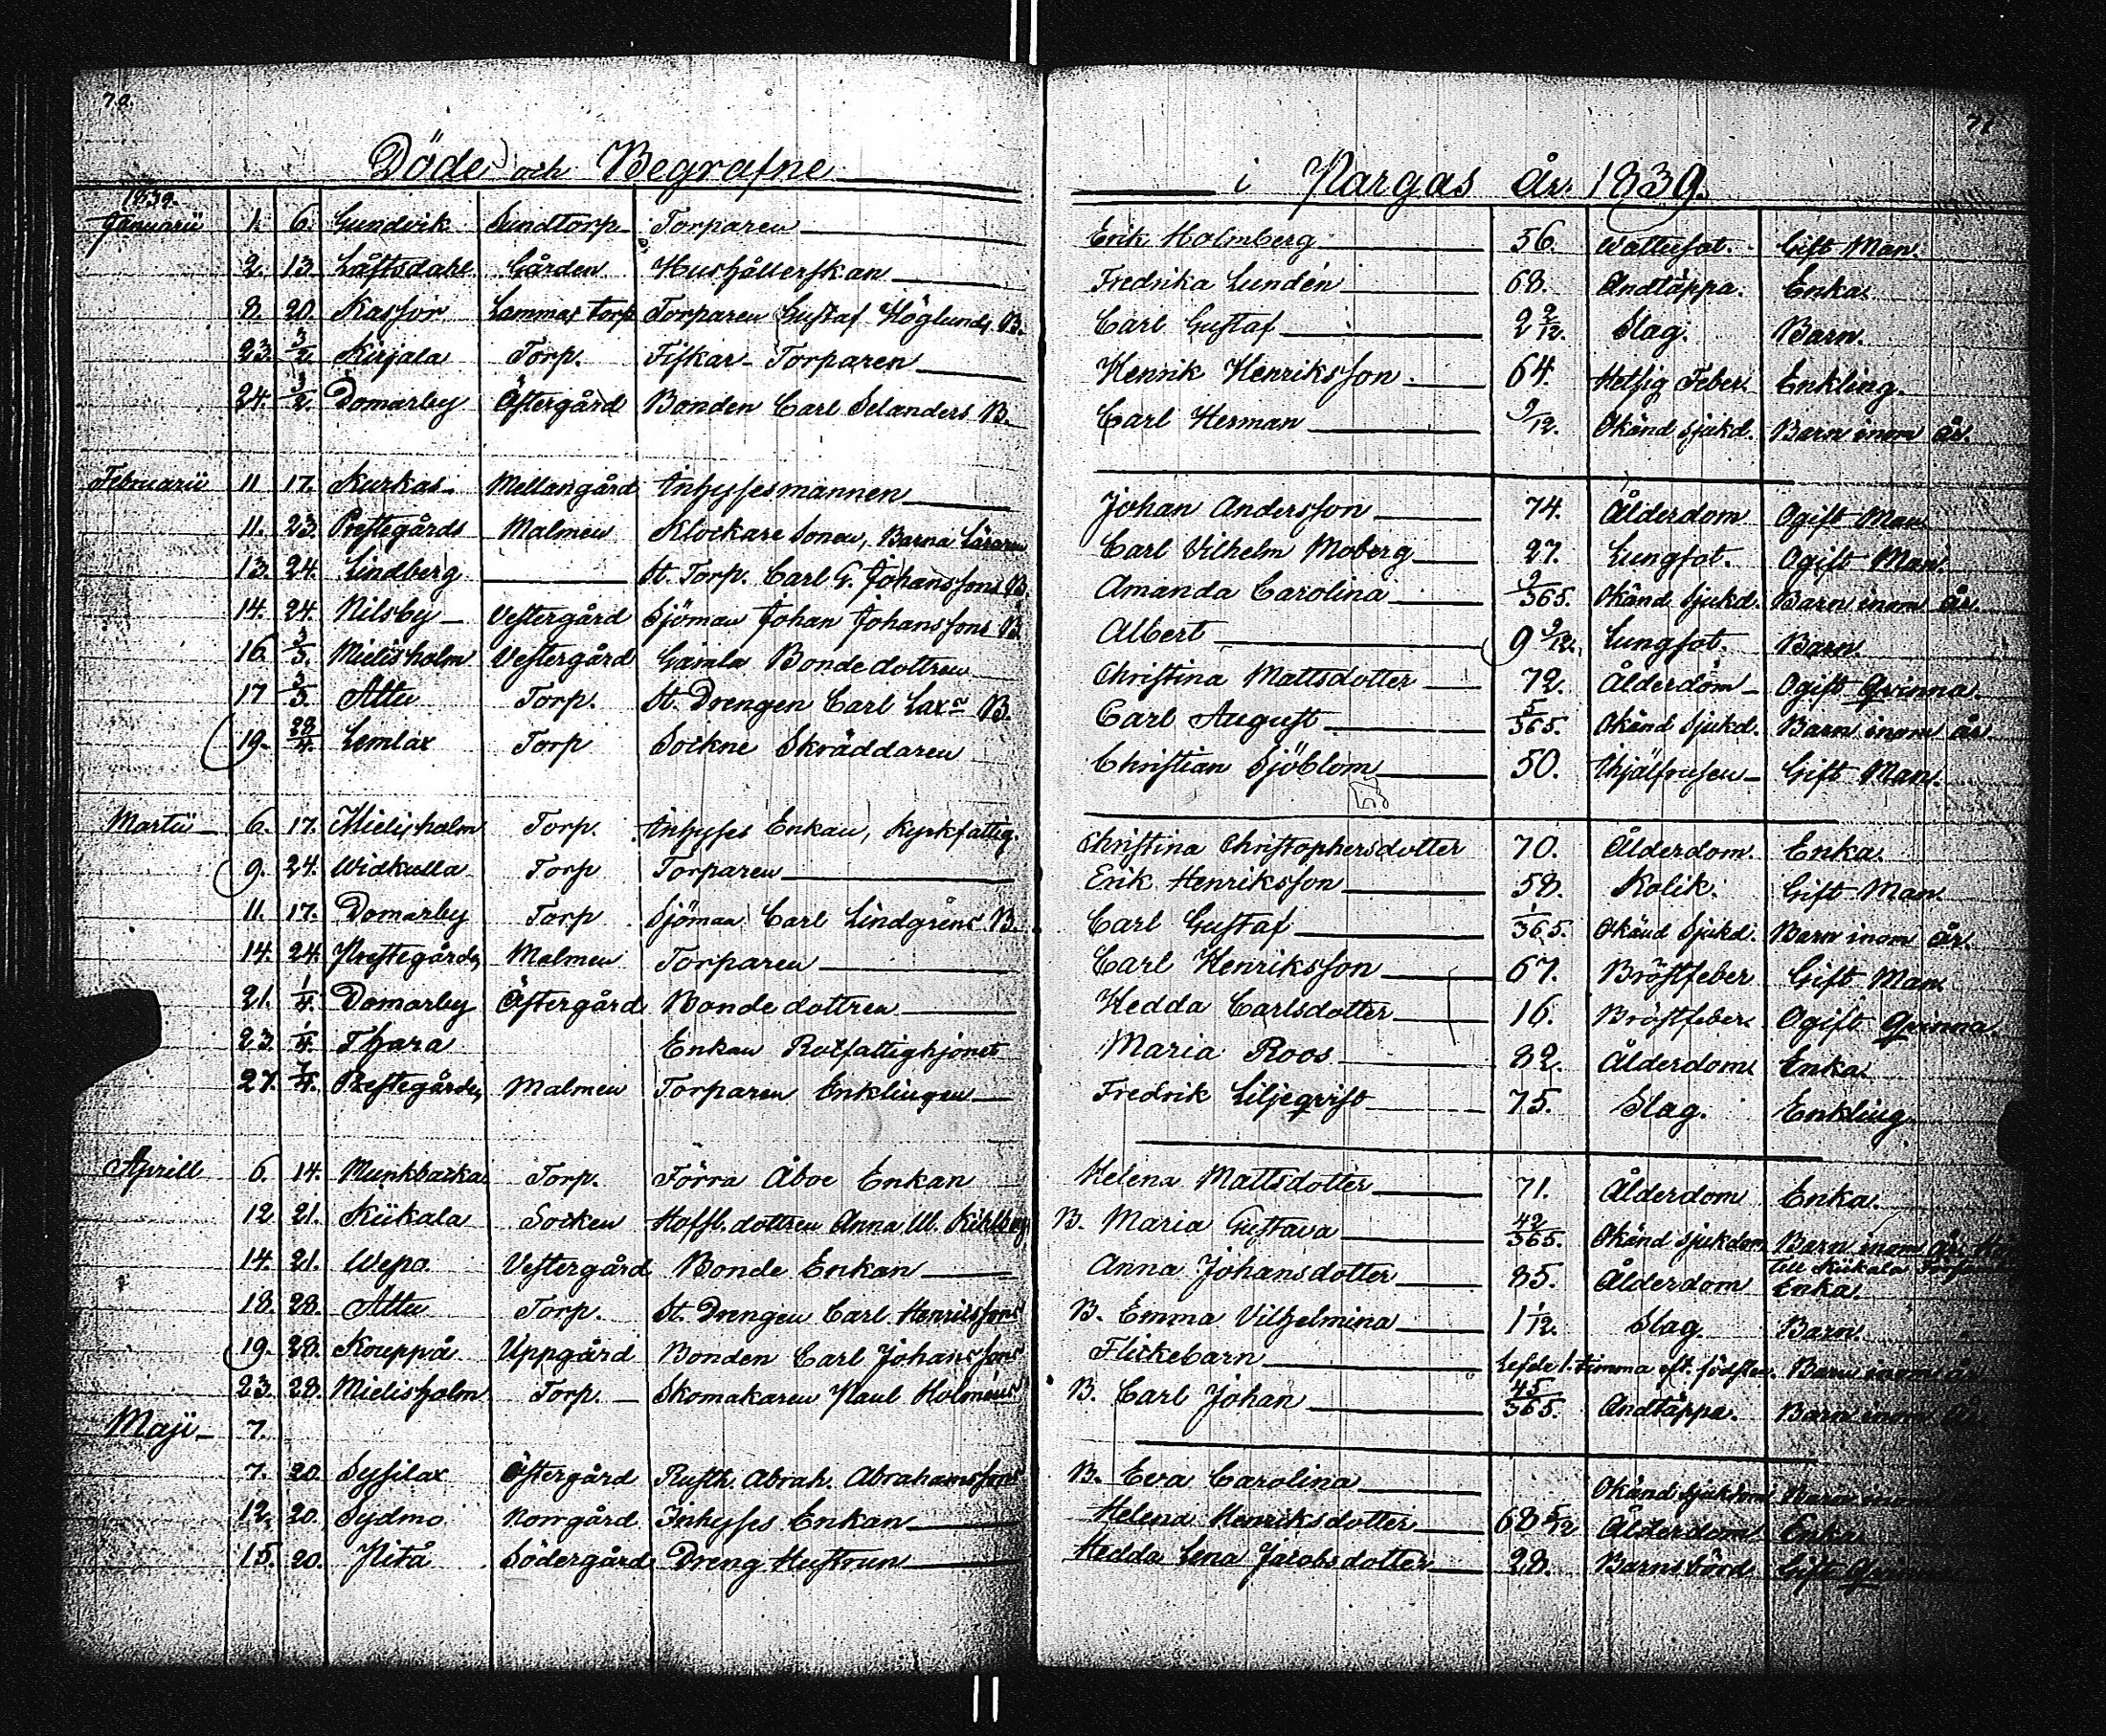 Döde och Begrafne i Pargas År 1839.
1839.
Januarii 1. 6. Gundvik Sundtorp Torparen Erik Holmberg 56. Wattusot. Gift Man.
2. 13. Låftsdahl Gården Hushållerskan Fredrika Lundén 68. Andtäppa. Enka.
8. 20. Kassor Lammas torp Torparen Gustaf Höglunds B. Carl Gustaf 2 2/12. Slag. Barn.
23. 3/2. Kirjala Torp. Fiskar-Torparen Henrik Henriksson 64. Hetsig Feber. Enkling.
24. 3/2. Domarby Östergård Bonden Carl Selanders B. Carl Herman 9/12. Okänd sjukd. Barn inom år.
Februarii 11 17. Kurkas Mellangård Inhysesmannen Johan Andersson 74. Ålderdom Ogift Man
11. 23. Prestegårds Malmen Klockare Sonen, Barna Läraren Carl Vilhelm Moberg 27. Lungsot. Ogift Man.
13. 24. Lindberg St. Torp. Carl G. Johanssons B. Amanda Carolina 9/365. Okänd Sjukd. Barn inom år.
14. 24. Nilsby Vestergård Sjöman Johan Johanssons B. Albert 9 9/12. Lungsot. Barn.
16. 3/3. Mielisholm Vestergård Gamla Bondedottren Christina Mattsdotter 72. Ålderdom Ogift Qvinna.
17 3/3. Attu Torp. St. Drengen Carl Laxs B. Carl August 5/365. Okänd Sjukd. Barn inom år.
19. 28/4. Lemlax Torp Sockne Skräddaren Christian Sjöblom 50. Ihjälfrusen Gift Man.
Martii 6. 17. Mielisholm Torp. Inhyses Enkan, Kyrkfattig. Christina Christophersdotter 70. Ålderdom. Enka.
9. 24. Widkulla Torp Torparen Erik Henriksson 58. Kolik. Gift Man.
11. 17. Domarby Torp Sjöman Carl Lindgréns B. Carl Gustaf 1/365. Okänd Sjukd. Barn inom år.
14. 24. Prestegårds Malmen Torparen Carl Henriksson 67. Bröstfeber Gift Man.
21. 1/4. Domarby Östergård Bondedottren Hedda Carlsdotter 16. Bröstfeber. Ogift Qvinna.
23. 1/4. Thara Enkan Rotfattighjonet Maria Roos 82. Ålderdom Enka.
27. 7/4. Prestegårds Malmen Torparen Enklingen Fredrik Liljeqvist 75. Slag. Enkling
Aprill 6. 14. Munkbacka Torp. Förra Åboe Enkan Helena Mattsdotter 71. Ålderdom Enka.
12 21. Kiikala Socken Hoffl. dottren Anna Ul. Kihlberg B. Maria Gustava 42/365. Okänd sjukdom Barn inom år.
till Kiikala
14. 21. Wepo Vestergård Bonde Enkan Anna Johansdotter 85. Ålderdom Enka.
18. 28. Attu Torp. St. Drengen Carl Henrikssons B. Emma Vilhelmina 1 1/12. Slag. Barn.
19. 28. Kouppå Uppgård Bonden Carl Johanssons Flickebarn Lefde 1. timma eft. födslen. Barn inom år
23. 28. Mielisholm Torp. Skomakaren Paul Holméns B. Carl Johan 45/365. Andtäppa. Barn inom år
Maji 7.
7. 20 Sysilax Östergård Rusth. Abrah. Abrahamssons B. Eva Carolina Okänd Sjukdom Barn inom
12. 20. Sydmo Norrgård Inhyses Enkan Helena Henriksdotter 68 5/12 Ålderdom Enka
15. 20. Pitå Södergård Dreng Hustrun Hedda Lena Jacobsdotter 28. Barnsbörd Gift Qvinna